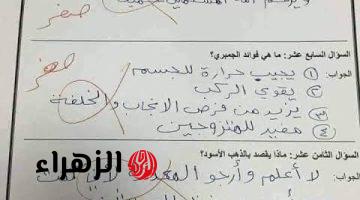 صفر
السؤال السابع عشر: ما هي فوائد الجمبري؟
صفر
الجواب: ① يجيب حرارة للجسم
② يقوي الركب
③ يزيد من فرص الانجاب والخلفة
④ مفيد للمتزوجين
السؤال الثامن عشر: ماذا يقصد بالذهب الأسود؟
الجواب: لا أعلم وأرجو
الزهراء